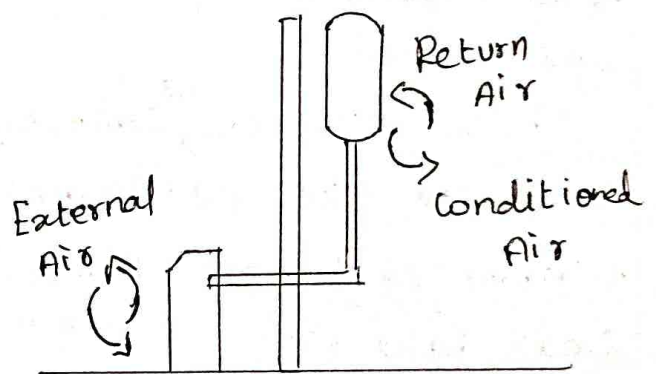 Return
Air
Conditioned
Air
External
Air